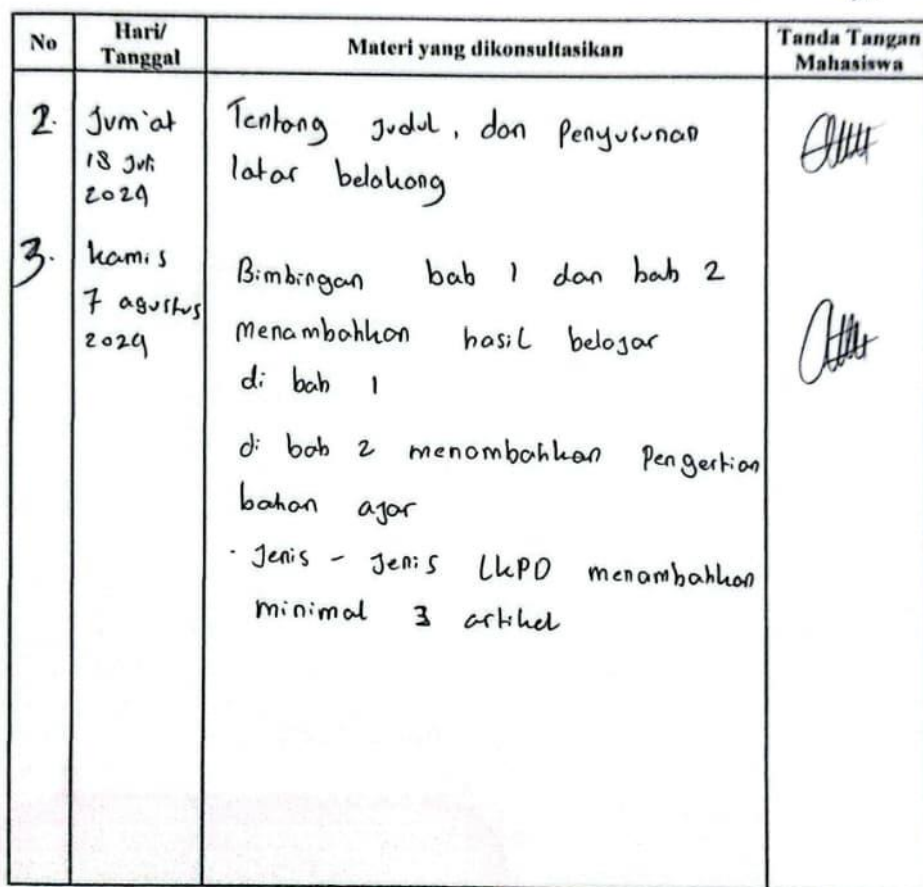 No
Hari/
Tanggal
Materi yang dikonsultasikan
Tanda Tangan
Mahasiswa
2.
Jum'at
18 Juli
2024
Tentang Judul, dan Penyusunan
latar belakang
3.
kamis
7 agustus
2024
Bimbingan bab 1 dan bab 2
menambahkan hasil belajar
di bab 1
di bab 2 menambahkan Pengertian
bahan ajar
- Jenis - Jenis LKPD menambahkan
minimal 3 artikel